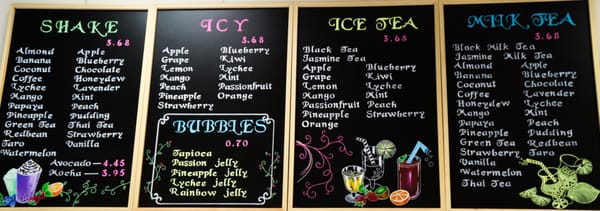 SHAKE
3.68
Almond Apple
Banana Blueberry
Coconut Chocolate
Coffee Honeydew
Lychee Lavender
Mango Mint
Papaya Peach
Pineapple Pudding
Green Tea Thai Tea
Redbean Strawberry
Taro Vanilla
Watermelon
Avocado - 4.45
Mocha - 3.95
ICY
3.68
Apple Blueberry
Grape Kiwi
Lemon Lychee
Mango Mint
Peach Passionfruit
Pineapple Orange
Strawberry
BUBBLES
0.70
Tapioca
Passion jelly
Pineapple jelly
Lychee jelly
Rainbow jelly
ICE TEA
3.68
Black Tea
Jasmine Tea
Apple Blueberry
Grape Kiwi
Lemon Lychee
Mango Mint
Passionfruit Peach
Pineapple Strawberry
Orange
MILK TEA
3.68
Black Milk Tea
Jasmine Milk Tea
Almond Apple
Banana Blueberry
Coconut Chocolate
Coffee Lavender
Honeydew Lychee
Mango Mint
Papaya Peach
Pineapple Pudding
Green Tea Redbean
Strawberry Taro
Vanilla
Watermelon
Thai Tea